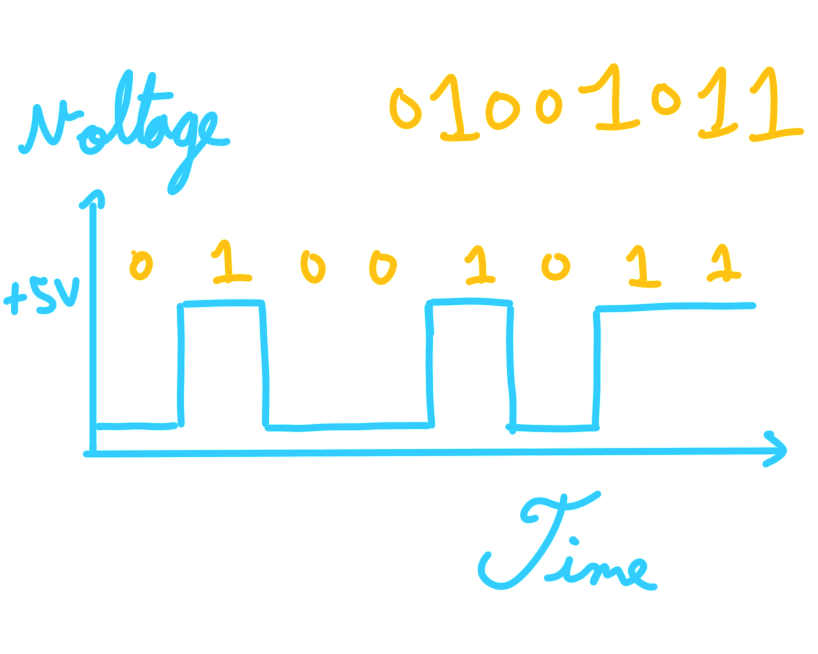 Voltage
01001011
0 1 0 0 1 0 1 1
+5V
Time